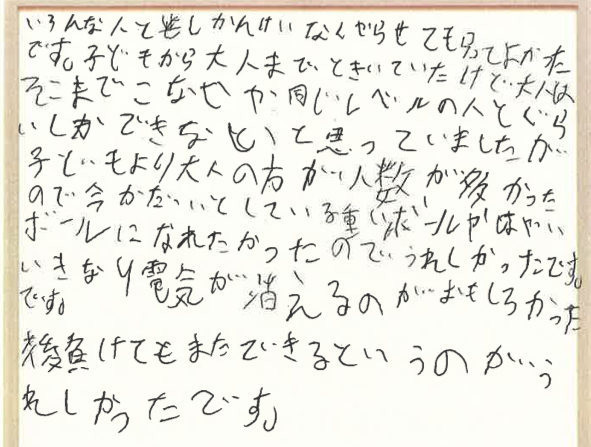 いろんな人と楽しかんけいなくやらせてもらってよかった
です。子どもから大人まで、ときいていたけど、大人は
そこまでこなせか同じレベルの人とぐら
いしかできないと、と思っていましたが
子どもより大人の方が人数が多かった
ので今かだいとしている重いボールやはやい
ボールになれたかったのでうれしかったです。
いきなり電気が消えるのがおもしろかった
です。
後負けてもまたできるというのがう
れしかったです。